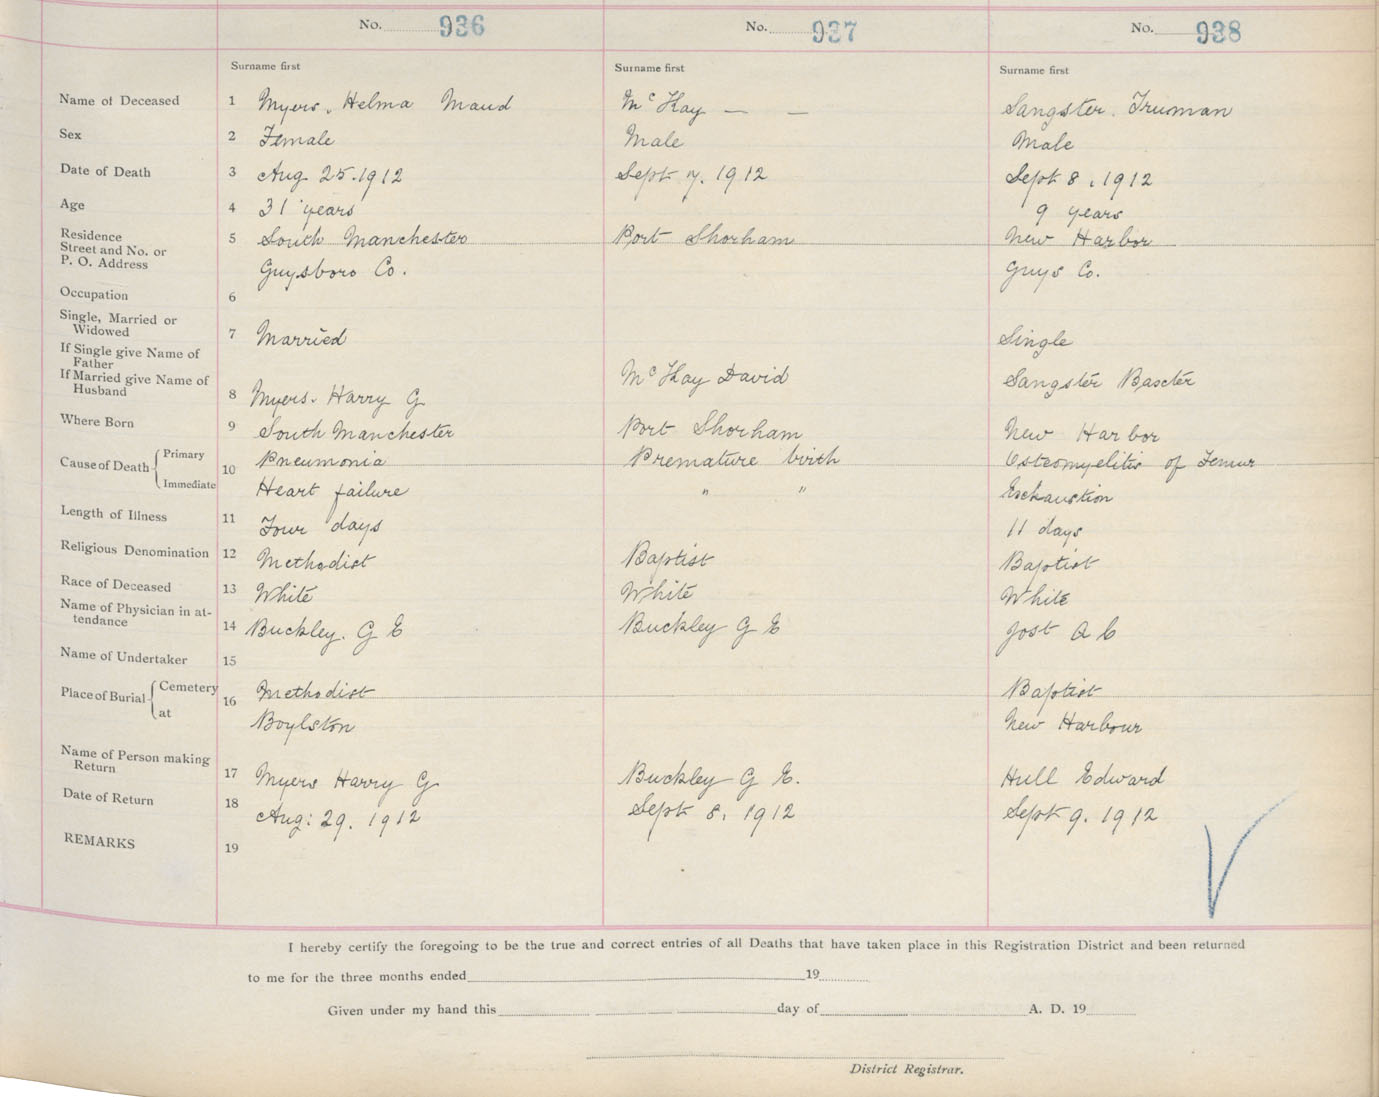 No. 936
No. 937
No. 938
Surname first
Surname first
Surname first
Name of Deceased 1 Myers, Helma Maud
McKay — —
Sangster. Truman
Sex 2 Female
Male
Male
Date of Death 3 Aug 25.1912
Sept 7. 1912
Sept 8, 1912
Age 4 31 years
9 years
Residence
Street and No. or
P. O. Address
5 South Manchester
Guysboro Co.
Port Shorham
New Harbor
Guys Co.
Occupation 6
Single, Married or
Widowed
7 Married
Single
If Single give Name of
Father
If Married give Name of
Husband
8 Myers. Harry G
McKay David
Sangster Baxter
Where Born 9 South Manchester
Port Shorham
New Harbor
Cause of Death { Primary
Immediate
10 Pneumonia
Heart failure
Premature birth
" "
Osteomyelitis of Femur
Exhaustion
Length of Illness 11 Four days
11 days
Religious Denomination 12 Methodist
Baptist
Baptist
Race of Deceased 13 White
White
White
Name of Physician in at-
tendance
14 Buckley. G E
Buckley G E
Jost A C
Name of Undertaker 15
Place of Burial { Cemetery
at
16 Methodist
Boylston
Baptist
New Harbour
Name of Person making
Return
17 Myers Harry G
Buckley G E.
Hull Edward
Date of Return 18 Aug: 29. 1912
Sept 8, 1912
Sept 9. 1912
REMARKS 19
I hereby certify the foregoing to be the true and correct entries of all Deaths that have taken place in this Registration District and been returned
to me for the three months ended 19
Given under my hand this day of A. D. 19
District Registrar.